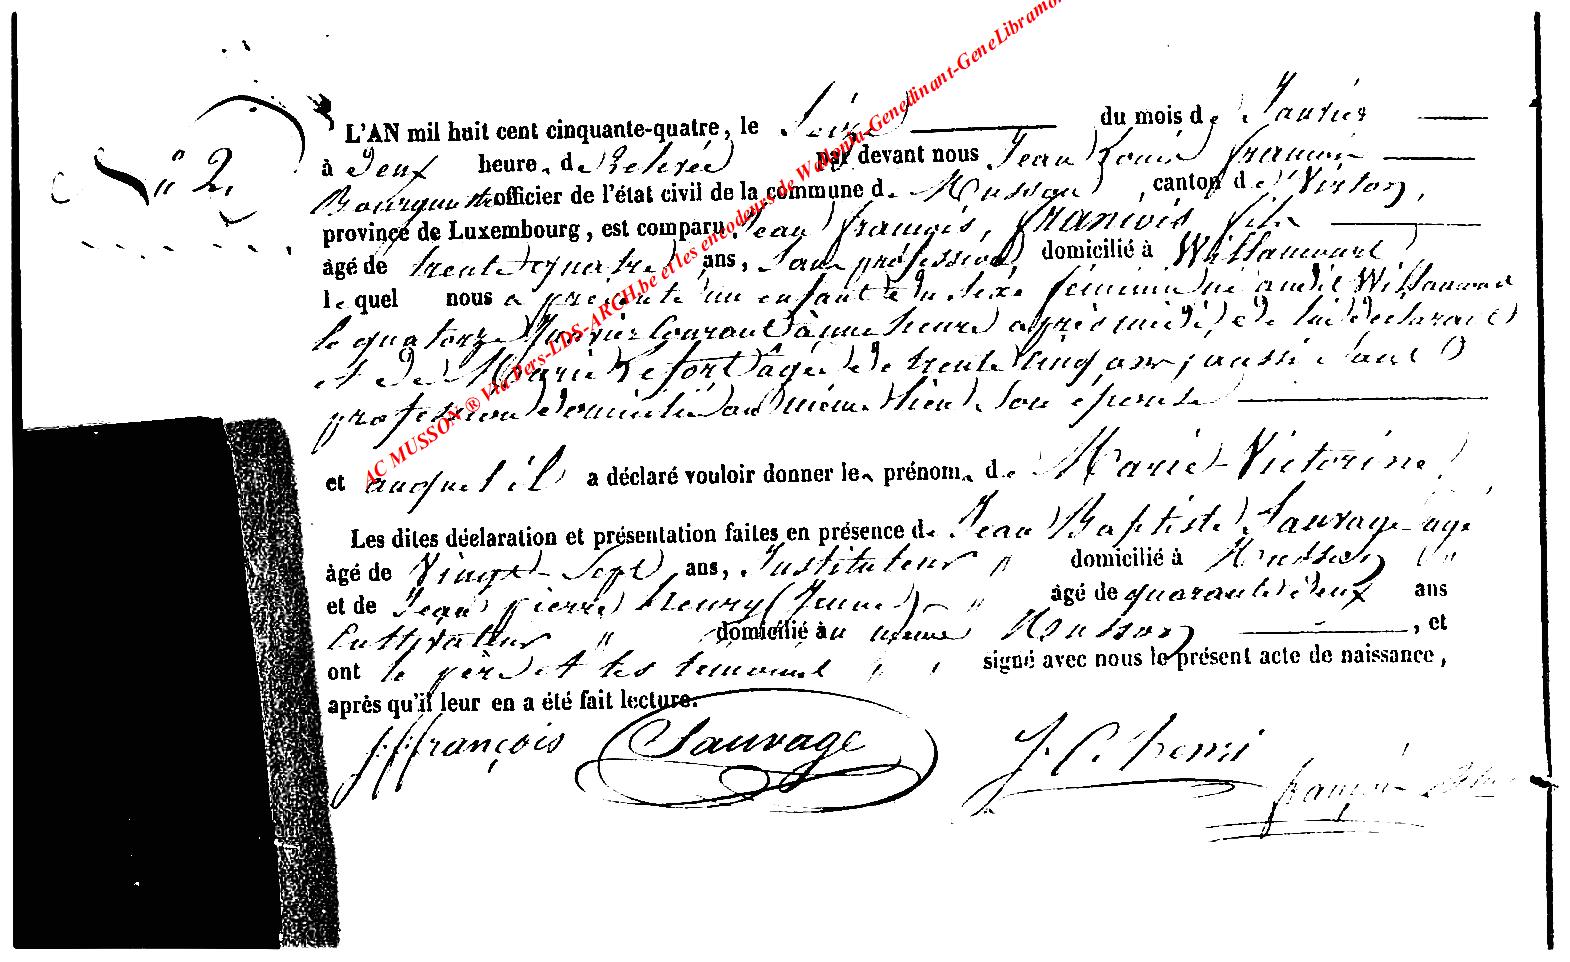 N° 2.
L'AN mil huit cent cinquante-quatre, le Seize du mois de Janvier
à Deux heure. de Relevée par devant nous Jean Louis françois
officier de l'état civil de la commune de Musson, canton de Virton,
province de Luxembourg, est comparu Jean françois, françois fils
âgé de trente quatre ans, Sans profession domicilié à Willancourt
lequel nous a présenté un enfant du Sexe féminin né audit Willancourt
le quatorze Janvier Courant à une heure après midi, de lui déclarant
et de Marie Lefort âgée de trente cinq ans, aussi Sans
profession domiciliée au même lieu Son épouse
et auquel il a déclaré vouloir donner les prénoms de Marie Victorine
Les dites déclaration et présentation faites en présence de Jean Baptiste Sauvage âgé
âgé de Vingt Sept ans, Instituteur " domicilié à Musson
et de Jean pierre henry (Jeune) " âgé de quarante deux ans
Cultivateur " domicilié au même Musson, et
ont le père et les témoins " " signé avec nous le présent acte de naissance,
après qu'il leur en a été fait lecture.
J. f. françois Sauvage J. henri françois
AC MUSSON ® Via Pers-LDS-ARCH.be et les encodeurs de Wallonia-Genedinant-GeneLibramon